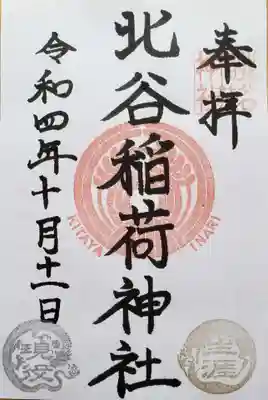 奉拝
北谷稲荷神社
令和四年十月十一日
KITAYA INARI